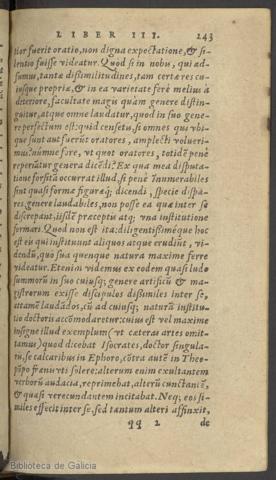 LIBER III. 243
tior fuerit oratio, non digna expectatione, & si-
lentio fuisse videatur. Quòd si in nobis, qui ad-
sumus, tantæ dissimilitudines, tam certæ res cu-
iusque propriæ, & in ea varietate ferè melius à
deteriore, facultate magis quàm genere distin-
guitur, atque omne laudatur, quod in suo gene-
re perfectum est: quid censetis, si omnes qui vbi-
que sunt aut fuerũt oratores, amplecti voluerí-
mus? nónne fore, vt quot oratores, totidẽ penè
reperiãtur genera dicẽdi? Ex qua mea disputa-
tione forsitã occurrat illud, si penè innumerabiles
sint quasi formæ figuræq́; dicendi, specie dispa-
res, genere laudabiles, non posse ea quæ inter se
discrepant, iisdẽ præceptis atq; vna institutione
formari. Quod non est ita: diligentissiméque hoc
est eis qui instituunt aliquos atque erudiũt, vi-
dendũ, quò sua quenque natura maximè ferre
videatur. Etenim videmus ex eodem quasi ludo
summorũ in suo cuiusq; genere artificũ & ma-
gistrorum exisse discipulos dissimiles inter se,
attamẽ laudãdos, cũ ad cuiusq; naturã institu-
tio doctoris accõmodaretur: cuius est vel maximè
insigne illud exemplum (vt cæteras artes omit-
tamus) quod dicebat Isocrates, doctor singula-
ris, se calcaribus in Ephoro, cõtrà autẽ in Theo-
põpo frænis vti solere: alterum enim exultantem
verborũ audacia, reprimebat, alterũ cunctantẽ,
& quasi verecundantem incitabat. Neq; eos si-
miles effecit inter se, sed tantum alteri affinxit,
qq 2 de
Biblioteca de Galicia